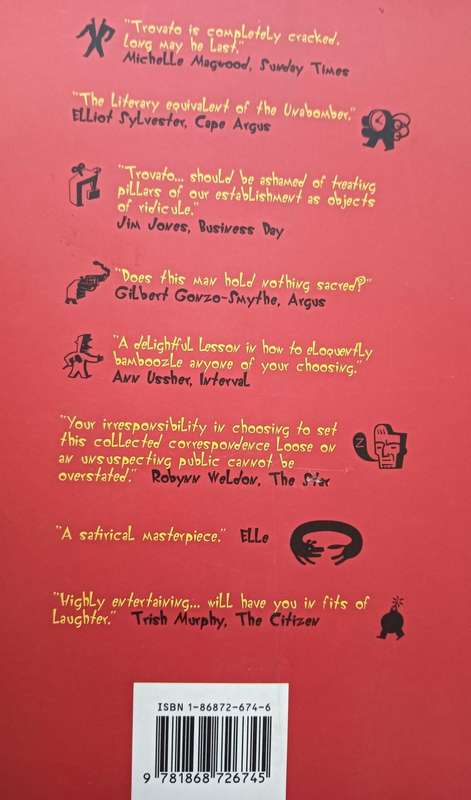 "Trovato is completely cracked.
Long may he last."
Michelle Magwood, Sunday Times
"The Literary equivalent of the Unabomber."
Elliot Sylvester, Cape Argus
"Trovato... should be ashamed of treating
pillars of our establishment as objects
of ridicule."
Jim Jones, Business Day
"Does this man hold nothing sacred?"
Gilbert Gonzo-Smythe, Argus
"A delightful Lesson in how to eloquently
bamboozle anyone of your choosing."
Ann Ussher, Interval
"Your irresponsibility in choosing to set
this collected correspondence Loose on
an unsuspecting public cannot be
overstated." Robynn Weldon, The Star
"A satirical masterpiece." Elle
"Highly entertaining... will have you in fits of
Laughter." Trish Murphy, The Citizen
ISBN 1-86872-674-6
9 781868 726745